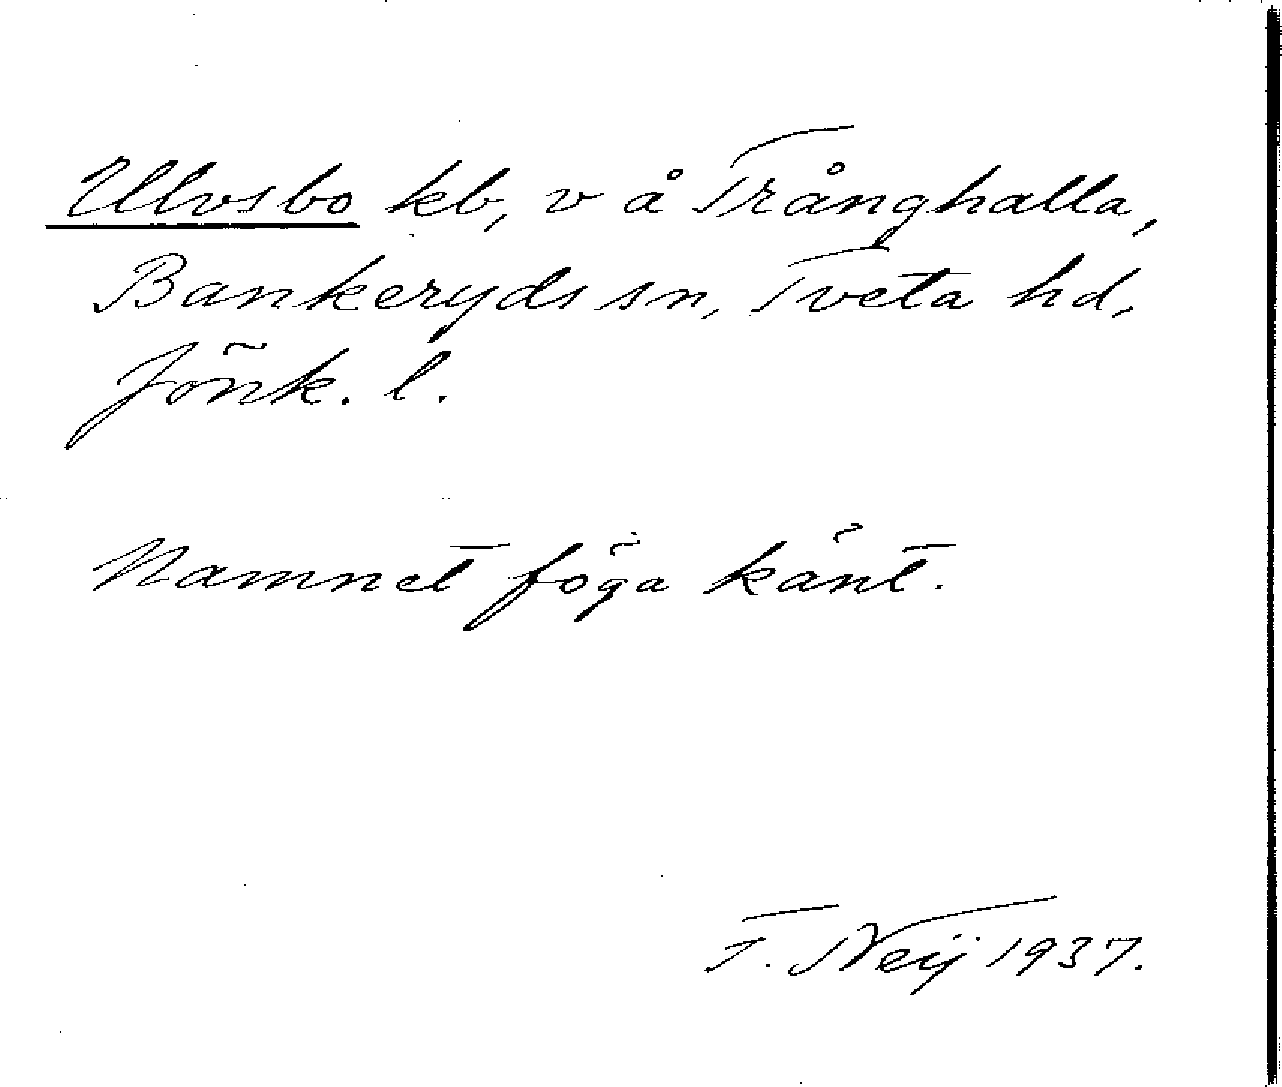 Ulvsbo kb, v å Trånghalla,
Bankeryds sn, Tveta hd,
Jönk. l.
Namnet föga känt.
T. Neij 1937.